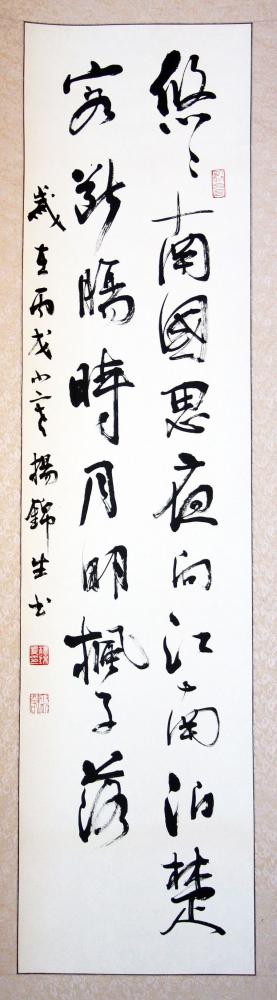 悠々南國思夜向江南泊楚
客斷腸時月明楓子落
歲在丙戌小寒楊錦生书